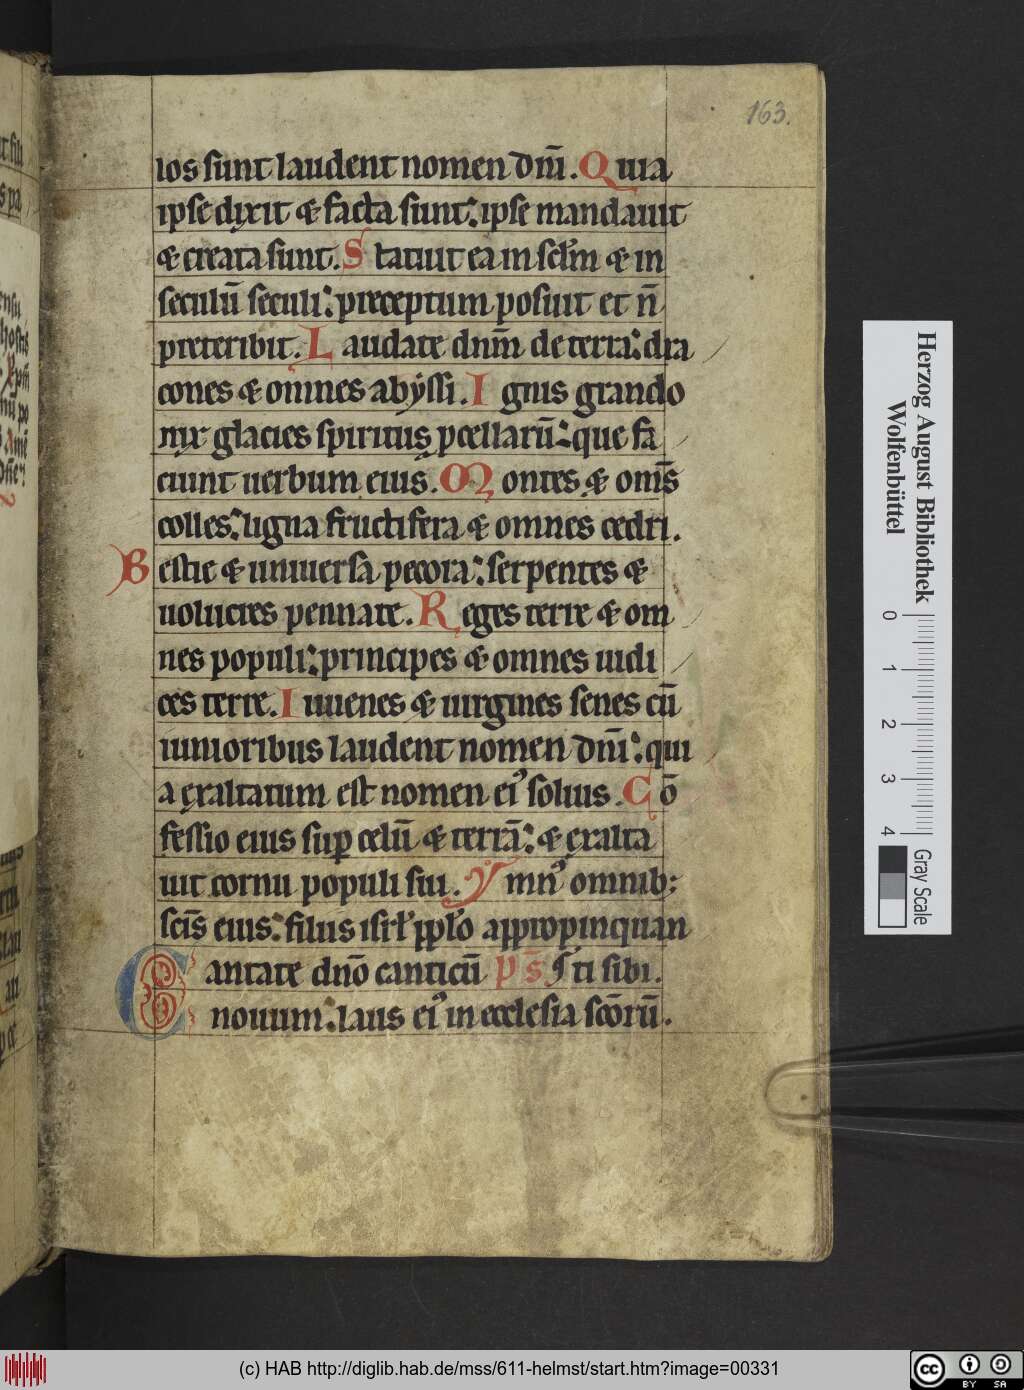 163.
los sunt laudent nomen dn̄i. Quia
ipse dixit & facta sunt: ipse mandauit
& creata sunt. Statuit ea in sclm̄ & in
seculū seculi: preceptum posuit et n̄
preteribit. Laudate dnm̄ de terra: dra
cones & omnes abyssi. Ignis grando
nix glacies spiritus ꝓcellarū: que fa
ciunt uerbum eius. Montes & om̄s
colles: ligna fructifera & omnes cedri.
Bestie & uniuersa pecora: serpentes &
uolucres pennate. Reges terre & om
nes populi: principes & omnes iudi
ces terre. Iuuenes & uirgines senes cū
iunioribus laudent nomen dn̄i: qui
a exaltatum est nomen eiꝰ solius. Cō
fessio eius suꝑ celū & terrā: & exalta
uit cornu populi sui. Ymnꝰ omnib:
scīs eius: filiis isrł pplo appropinquan
Cantate dnō canticū Ps̄ ti sibi.
nouum: laus eiꝰ in ecclesia scōrū.
Herzog August Bibliothek
Wolfenbüttel
0 1 2 3 4
Gray Scale
(c) HAB http://diglib.hab.de/mss/611-helmst/start.htm?image=00331
cc BY SA